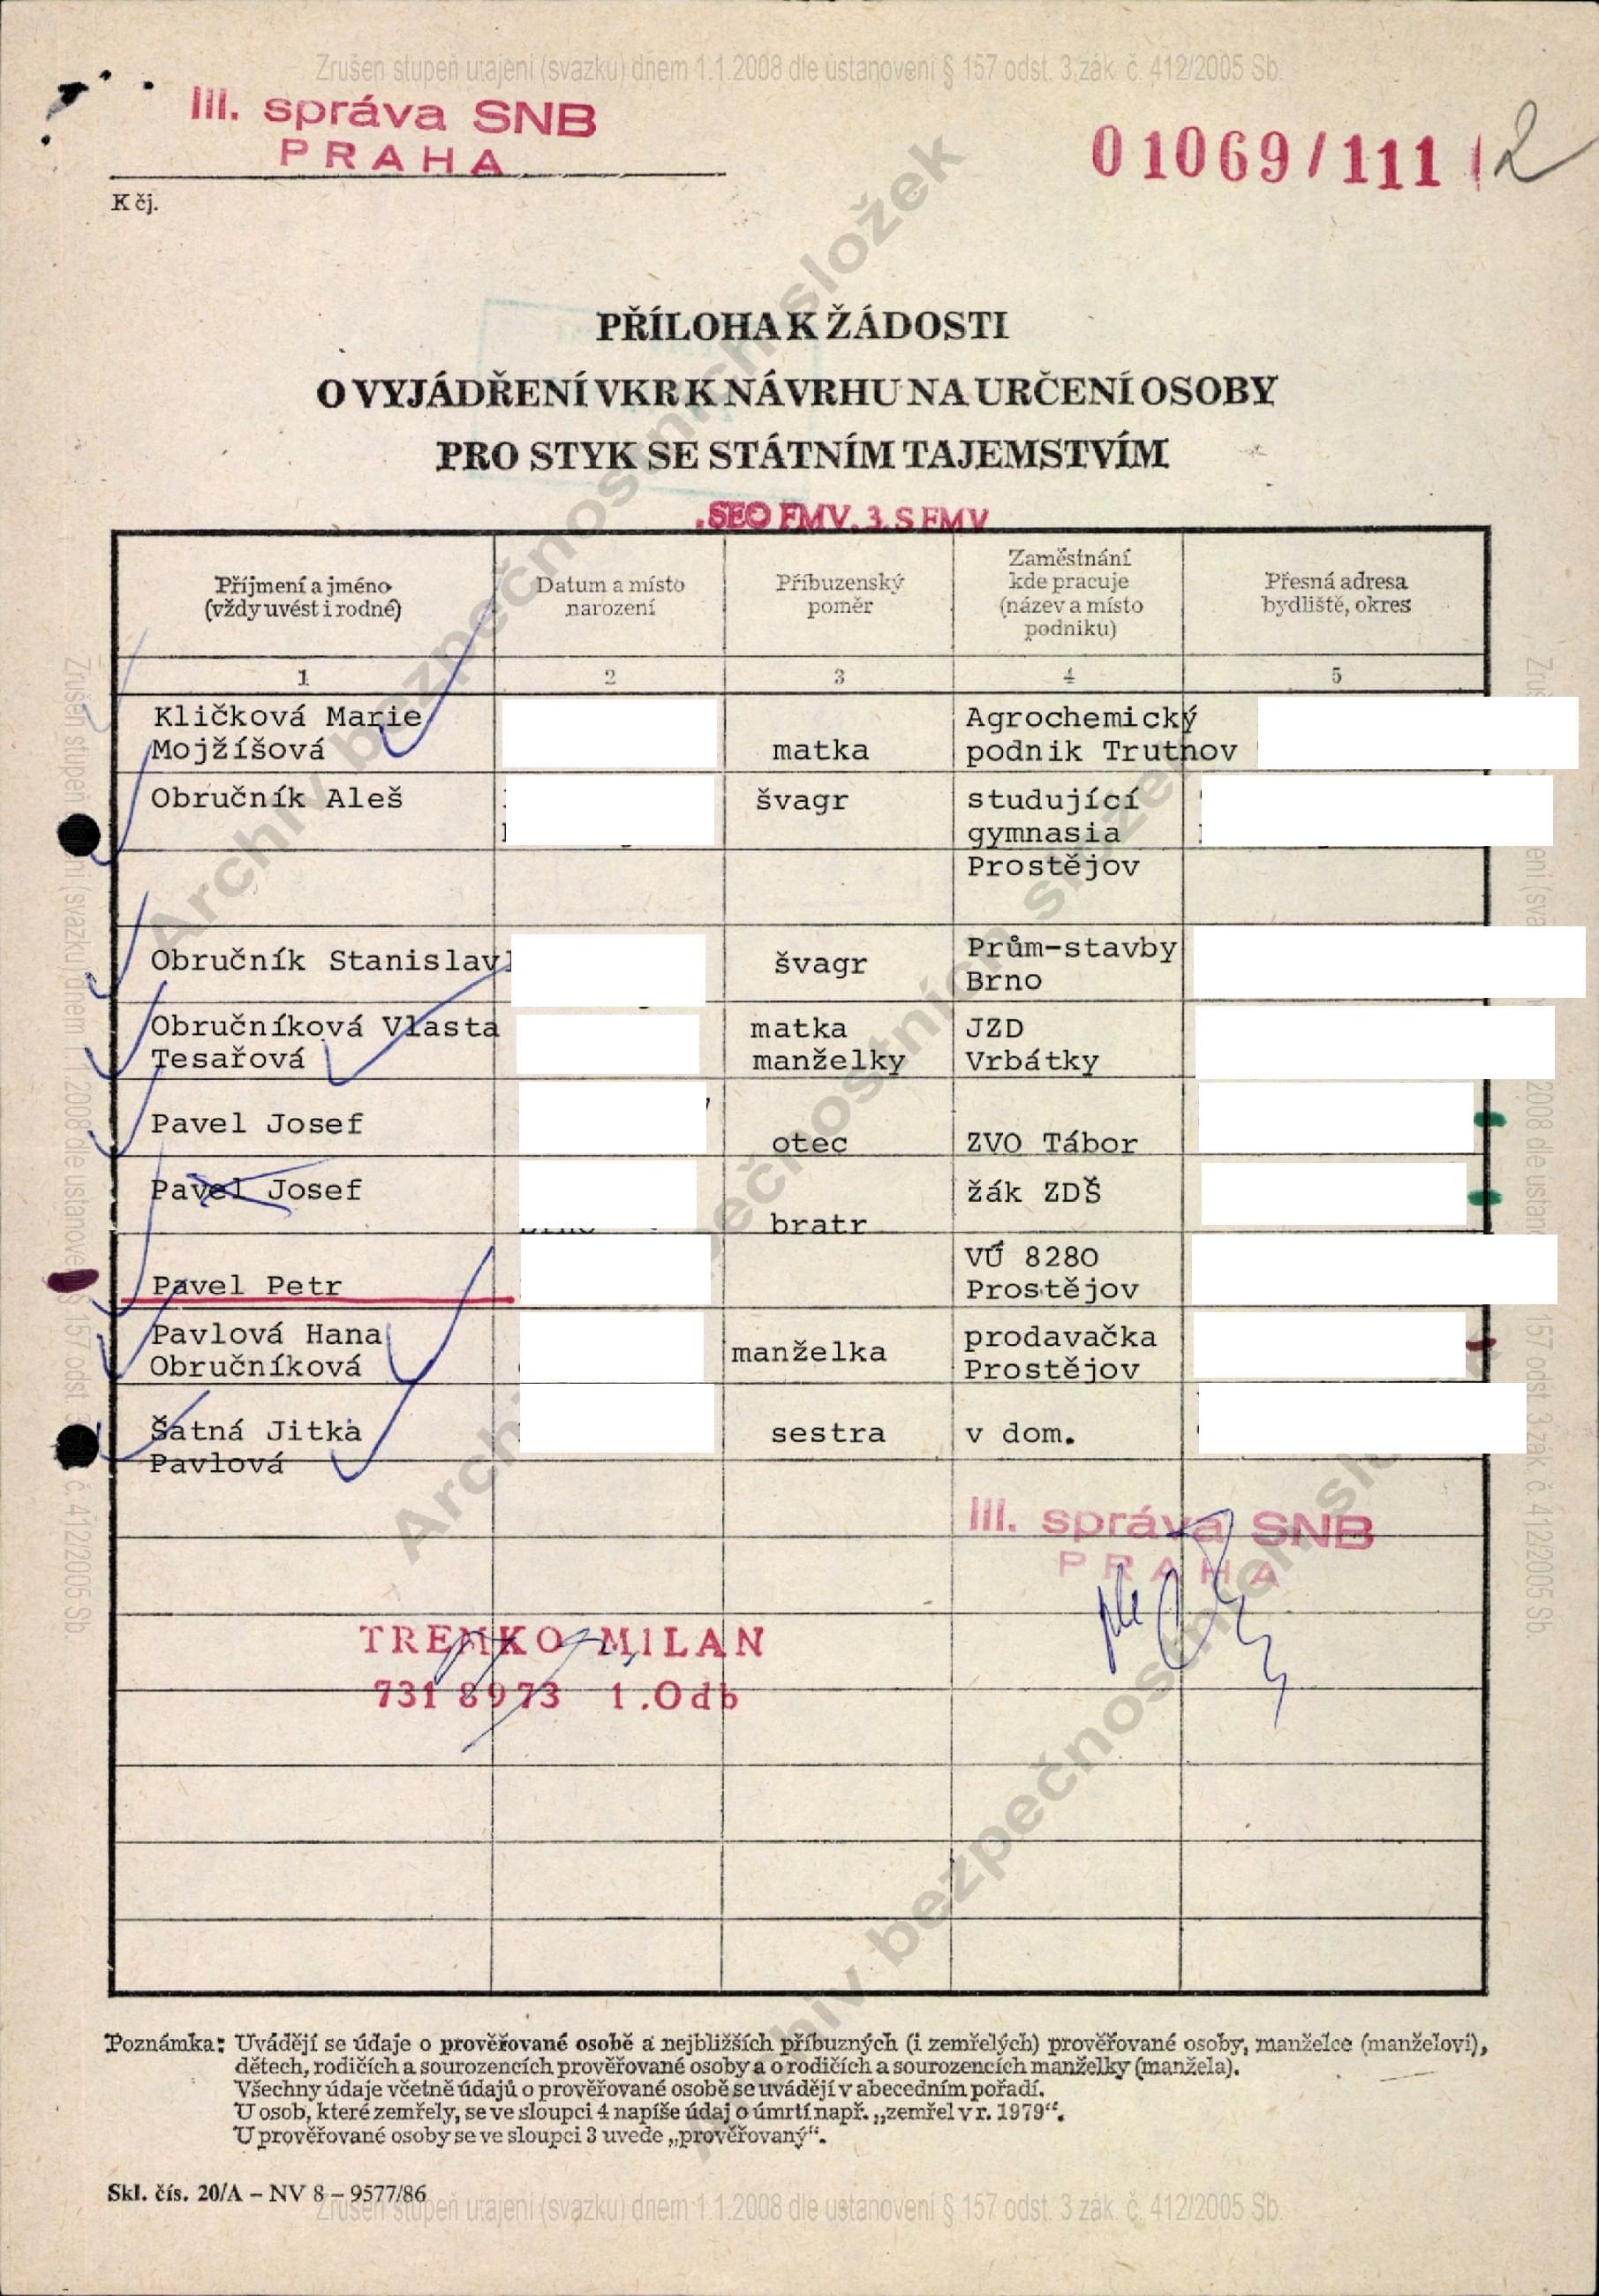 Zrušen stupeň utajení (svazku) dnem 1.1.2008 dle ustanovení § 157 odst. 3 zák. č. 412/2005 Sb.
III. správa SNB
PRAHA
01069/111/2
K čj.
PŘÍLOHA K ŽÁDOSTI
O VYJÁDŘENÍ VKR K NÁVRHU NA URČENÍ OSOBY
PRO STYK SE STÁTNÍM TAJEMSTVÍM
SEO FMV, 3. S FMV
Příjmení a jméno
(vždy uvést i rodné)
Datum a místo
narození
Příbuzenský
poměr
Zaměstnání
kde pracuje
(název a místo
podniku)
Přesná adresa
bydliště, okres
1 2 3 4 5
Kličková Marie Agrochemický
Mojžíšová matka podnik Trutnov
Obručník Aleš švagr studující
gymnasia
Prostějov
Obručník Stanislav švagr Prům-stavby
Brno
Obručníková Vlasta matka JZD
Tesařová manželky Vrbátky
Pavel Josef otec ZVO Tábor
Pavel Josef bratr žák ZDŠ
Pavel Petr VÚ 8280
Prostějov
Pavlová Hana manželka prodavačka
Obručníková Prostějov
Šatná Jitka sestra v dom.
Pavlová
III. správa SNB
PRAHA
TREMKO MILAN
731 8973 1.Odb
Poznámka: Uvádějí se údaje o prověřované osobě a nejbližších příbuzných (i zemřelých) prověřované osoby, manželce (manželovi),
dětech, rodičích a sourozencích prověřované osoby a o rodičích a sourozencích manželky (manžela).
Všechny údaje včetně údajů o prověřované osobě se uvádějí v abecedním pořadí.
U osob, které zemřely, se ve sloupci 4 napíše údaj o úmrtí např. „zemřel v r. 1979“.
U prověřované osoby se ve sloupci 3 uvede „prověřovaný“.
Skl. čís. 20/A – NV 8 – 9577/86
Zrušen stupeň utajení (svazku) dnem 1.1.2008 dle ustanovení § 157 odst. 3 zák. č. 412/2005 Sb.
Zrušen stupeň utajení (svazku) dnem 1.1.2008 dle ustanovení § 157 odst. 3 zák. č. 412/2005 Sb.
Zrušen stupeň utajení (svazku) dnem 1.1.2008 dle ustanovení § 157 odst. 3 zák. č. 412/2005 Sb.
Archiv bezpečnostních složek
Archiv bezpečnostních složek
Archiv bezpečnostních složek